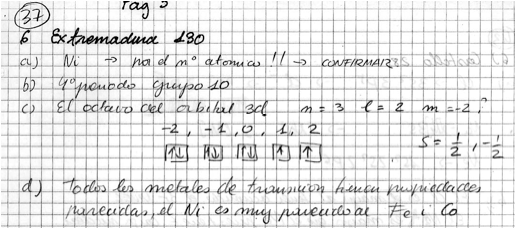 37
Pag 5
6 Extremadura 130
a) Ni → por el nº atomico !! → CONFIRMAR?
b) 4º periodo grupo 10
c) El octavo del orbital 3d m = 3 l = 2 m = -2 ?
-2, -1, 0, 1, 2
↑↓ ↑↓ ↑↓ ↑ ↑
s = 1/2, -1/2
d) Todos los metales de transicion tienen propiedades
parecidas, el Ni es muy parecido al Fe i Co